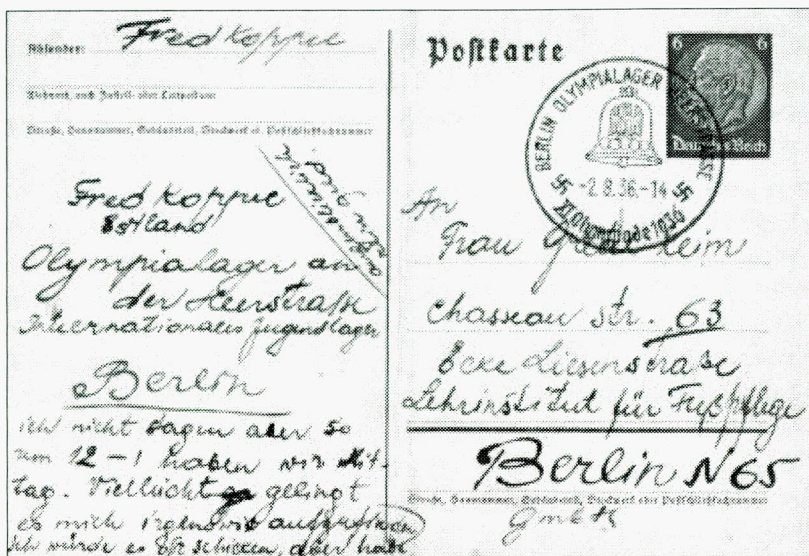 Absender: Fred Koppel
Wohnort, auch Zustell- oder Leitpostamt
Straße, Hausnummer, Gebäudeteil, Stockwerk od. Postschließfachnummer
Fred Koppel
Estland
Olympialager an
der Heerstraße
Internationales Jugendlager
Berlin
ich nicht sagen aber so
um 12-1 haben wir Mit-
tag. Vielleicht gelingt
es mich irgendwie
Ich würde es oft schicken, aber habe
Postkarte
6 6
Deutsches Reich
BERLIN OLYMPIALAGER HEERSTRASSE
-2.8.36.-14
XI. Olympiade 1936
An
Frau
Chasseau str. 63
Ecke Liesenstraße
Lehrinstitut für Fußpflege
Berlin N 65
Straße, Hausnummer, Gebäudeteil, Stockwerk oder Postschließfachnummer
GmbH